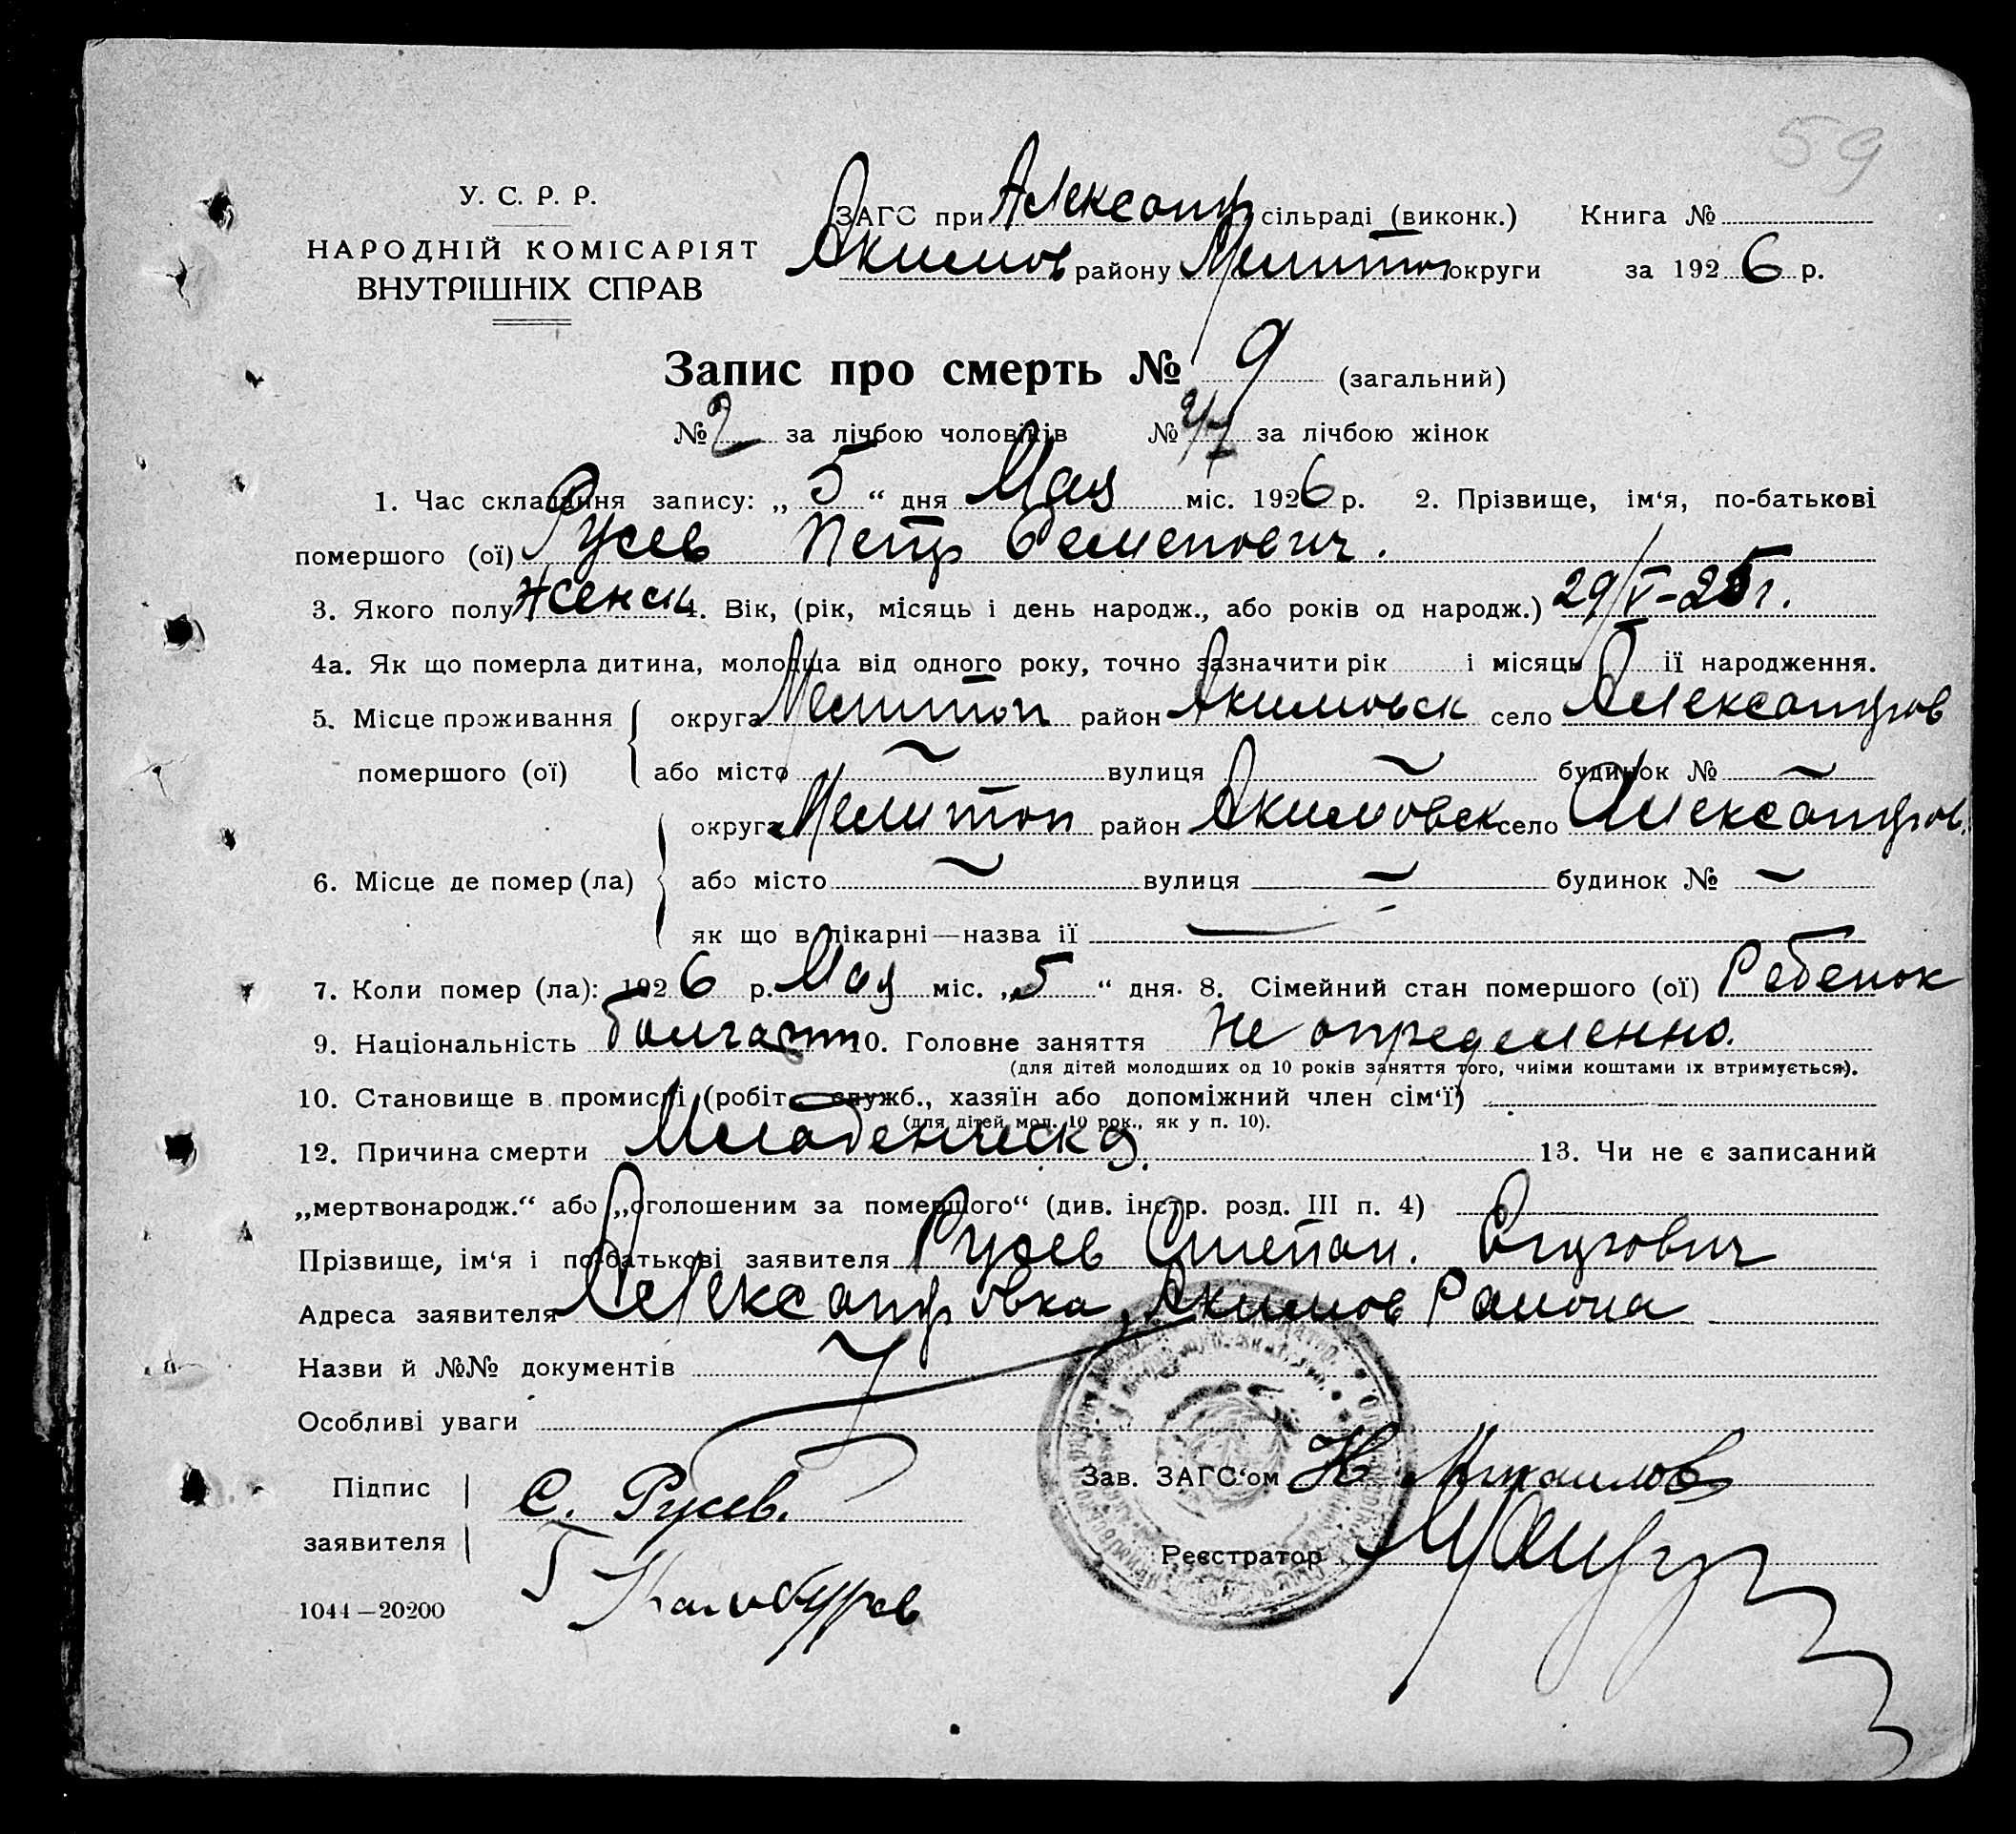 59
У. С. Р. Р.
НАРОДНІЙ КОМІСАРІЯТ
ВНУТРІШНІХ СПРАВ
ЗАГС при Александр сільраді (виконк.) Книга №
Акимов району Мелитоп округи за 1926 р.
Запис про смерть № 9 (загальний)
№ 2 за лічбою чоловіків № за лічбою жінок
1. Час складання запису: „5“ дня Мая міс. 1926 р. 2. Прізвище, ім‘я, по-батькові
помершого (ої) Русев Петр Семенович.
3. Якого полу Женск 4. Вік, (рік, місяць і день народж., або років од народж.) 29/V-25 г.
4а. Як що померла дитина, молодща від одного року, точно зазначити рік і місяць ії народження.
5. Місце проживання округа Мелитоп район Акимовск село Александров
помершого (ої) або місто — вулиця — будинок № —
округа Мелитоп район Акимовск село Александров.
6. Місце де помер (ла) або місто — вулиця — будинок № —
як що в лікарні—назва ії —
7. Коли помер (ла): 1926 р. Мая міс. „5“ дня. 8. Сімейний стан помершого (ої) Ребенок
9. Національність болгарин 10. Головне заняття Не определенно.
(для дітей молодших од 10 років заняття того, чиїми коштами іх втримується).
10. Становище в промислі (робіт., служб., хазяїн або допоміжний член сім‘ї)
(для дітей мол. 10 рок., як у п. 10).
12. Причина смерти Младенческая. 13. Чи не є записаний
„мертвонародж.“ або „оголошеним за помершого“ (див. інстр. розд. III п. 4)
Прізвище, ім‘я і по-батькові заявителя Русев Степан.
Адреса заявителя Александровка, Акимов Района
Назви й №№ документів
Особливі уваги
Підпис
заявителя
С. Русев.
Зав. ЗАГС‘ом Н Михаилов
Реєстратор
1044—20200